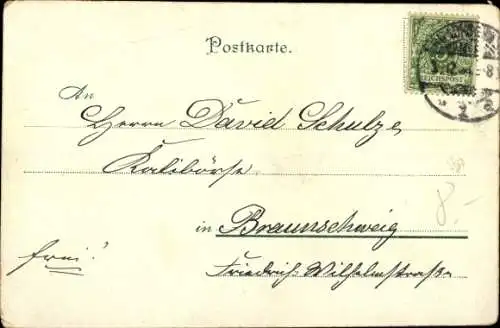 Postkarte.
REICHSPOST
An
Herrn David Schulze
Kalibörse
in Braunschweig
frei!
Friedrich Wilhelmstraße
8.-